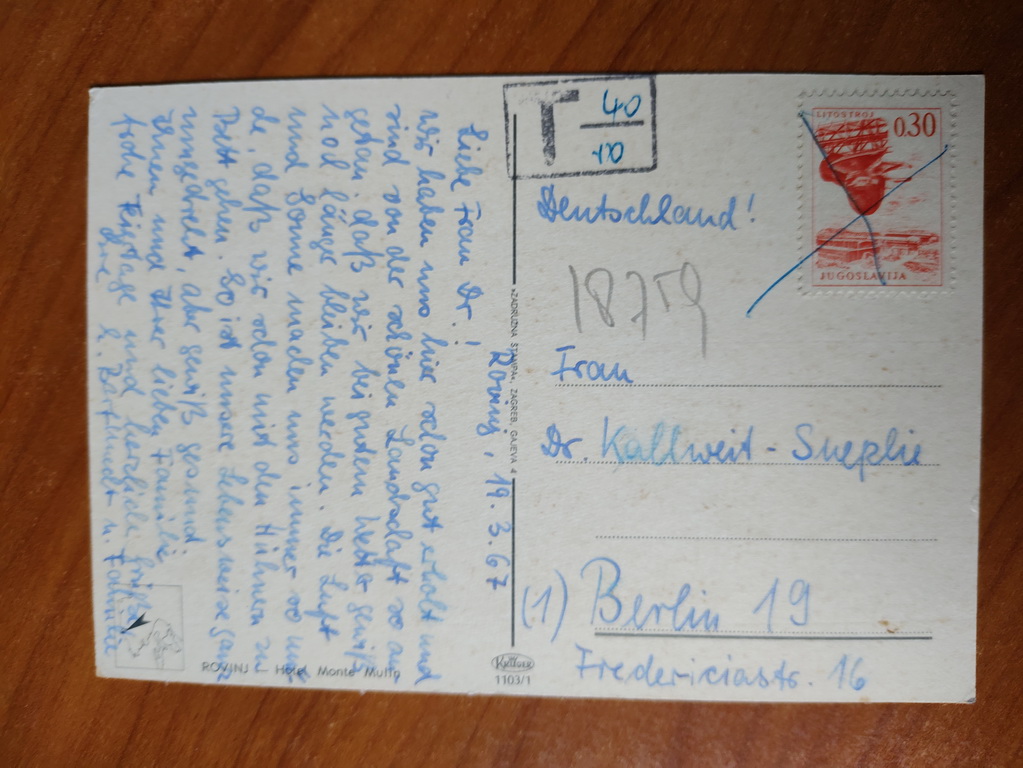 Rovinj, 19.3.67
Liebe Frau Dr.!
Wir haben uns hier schon gut erholt und
sind von der schönen Landschaft so an
getan, daß wir bei gutem Wetter gewiß
noch länger bleiben werden. Die Luft
und Sonne machen uns immer so mü
de, daß wir schon mit den Hühnern zu
Bett gehen. So ist unsere Lebensweise ganz
umgedreht, aber gewiß gesund.
Ihnen und Ihrer lieben Familie
frohe Festtage und herzliche Grüße
Ihre u. Familie
ROVINJ Hotel Monte Mulin
»ZADRUŽNA ŠTAMPA«, ZAGREB, GAJEVA 4
1103/1
T 40
10
LITOSTROJ
0.30
JUGOSLAVIJA
Deutschland!
18759
Frau
Dr. Kallweit -
(1) Berlin 19
Fredericiastr. 16